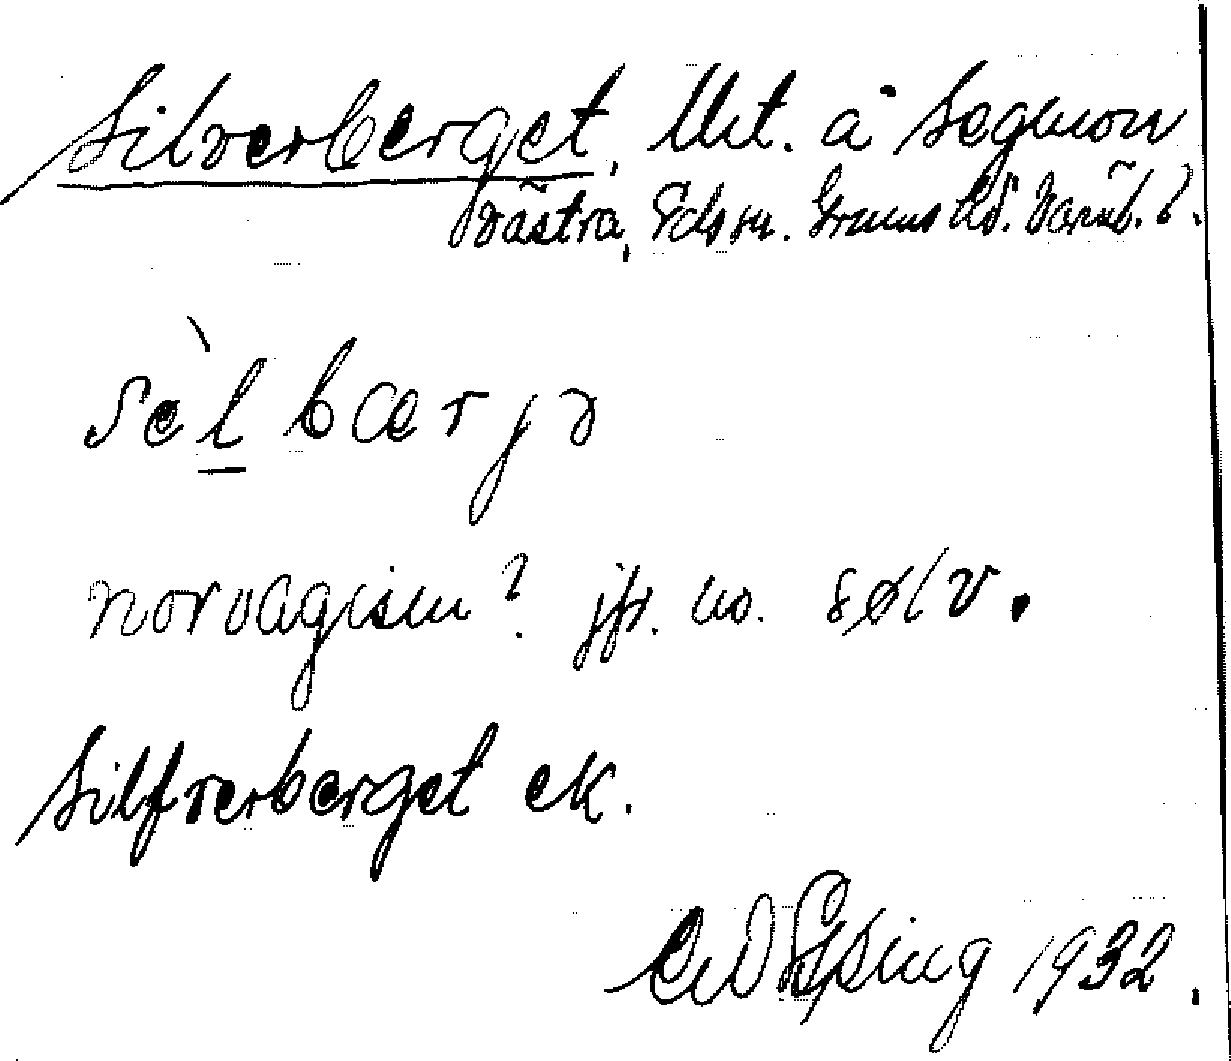 Silverberget, Utt. å Segmon
västra, Edsm. Grums hd. Värml. l.
sèl bærjə
norvagism? jfr. no. sølv.
Silfverberget ek.
1932.